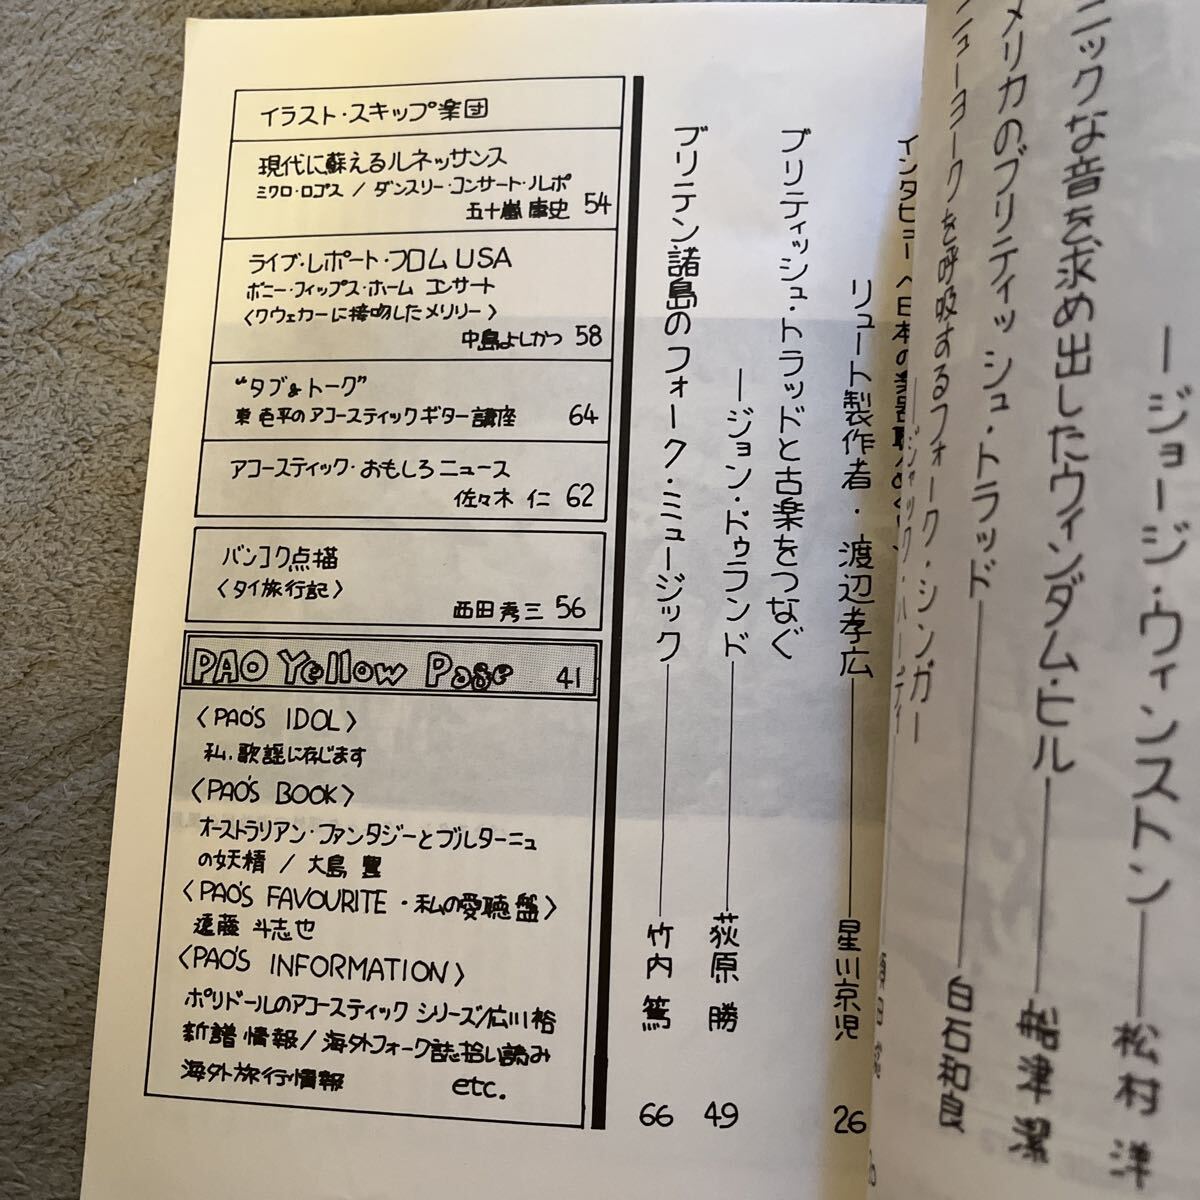 ニックな音を求め出したウィンダム・ヒル
―ジョージ・ウィンストン
松村 洋
メリカのブリティッシュ・トラッド
船津 潔
ニューヨークを呼吸するフォーク・シンガー
―ジャック・ハーディ
白石和良
インタビュー〈日本の楽器職人めぐり〉
リュート製作者・渡辺孝広
星川京児
26
ブリティッシュ・トラッドと古楽をつなぐ
―ジョン・ドゥランド
荻原 勝
49
ブリテン諸島のフォーク・ミュージック
竹内 篤
66
イラスト・スキップ楽団
現代に蘇えるルネッサンス
ミクロ・ロゴス / ダンスリー・コンサート・ルポ
五十嵐 庫史 54
ライブ・レポート・フロム USA
ボニー・フィップス・ホーム コンサート
〈クウェカーに接吻したメリリー〉
中島よしかつ 58
"タブ&トーク"
東 壱平のアコースティックギター講座 64
アコースティック・おもしろニュース
佐々木 仁 62
バンコク点描
〈タイ旅行記〉
西田秀三 56
PAO Yellow Page 41
〈PAO'S IDOL〉
私、歌謡に存じます
〈PAO'S BOOK〉
オーストラリアン・ファンタジーとブルターニュ
の妖精 / 大島 豊
〈PAO'S FAVOURITE・私の愛聴盤〉
遠藤 斗志也
〈PAO'S INFORMATION〉
ポリドールのアコースティック シリーズ/広川裕
新譜情報 / 海外フォーク誌拾い読み
海外旅行情報 etc.